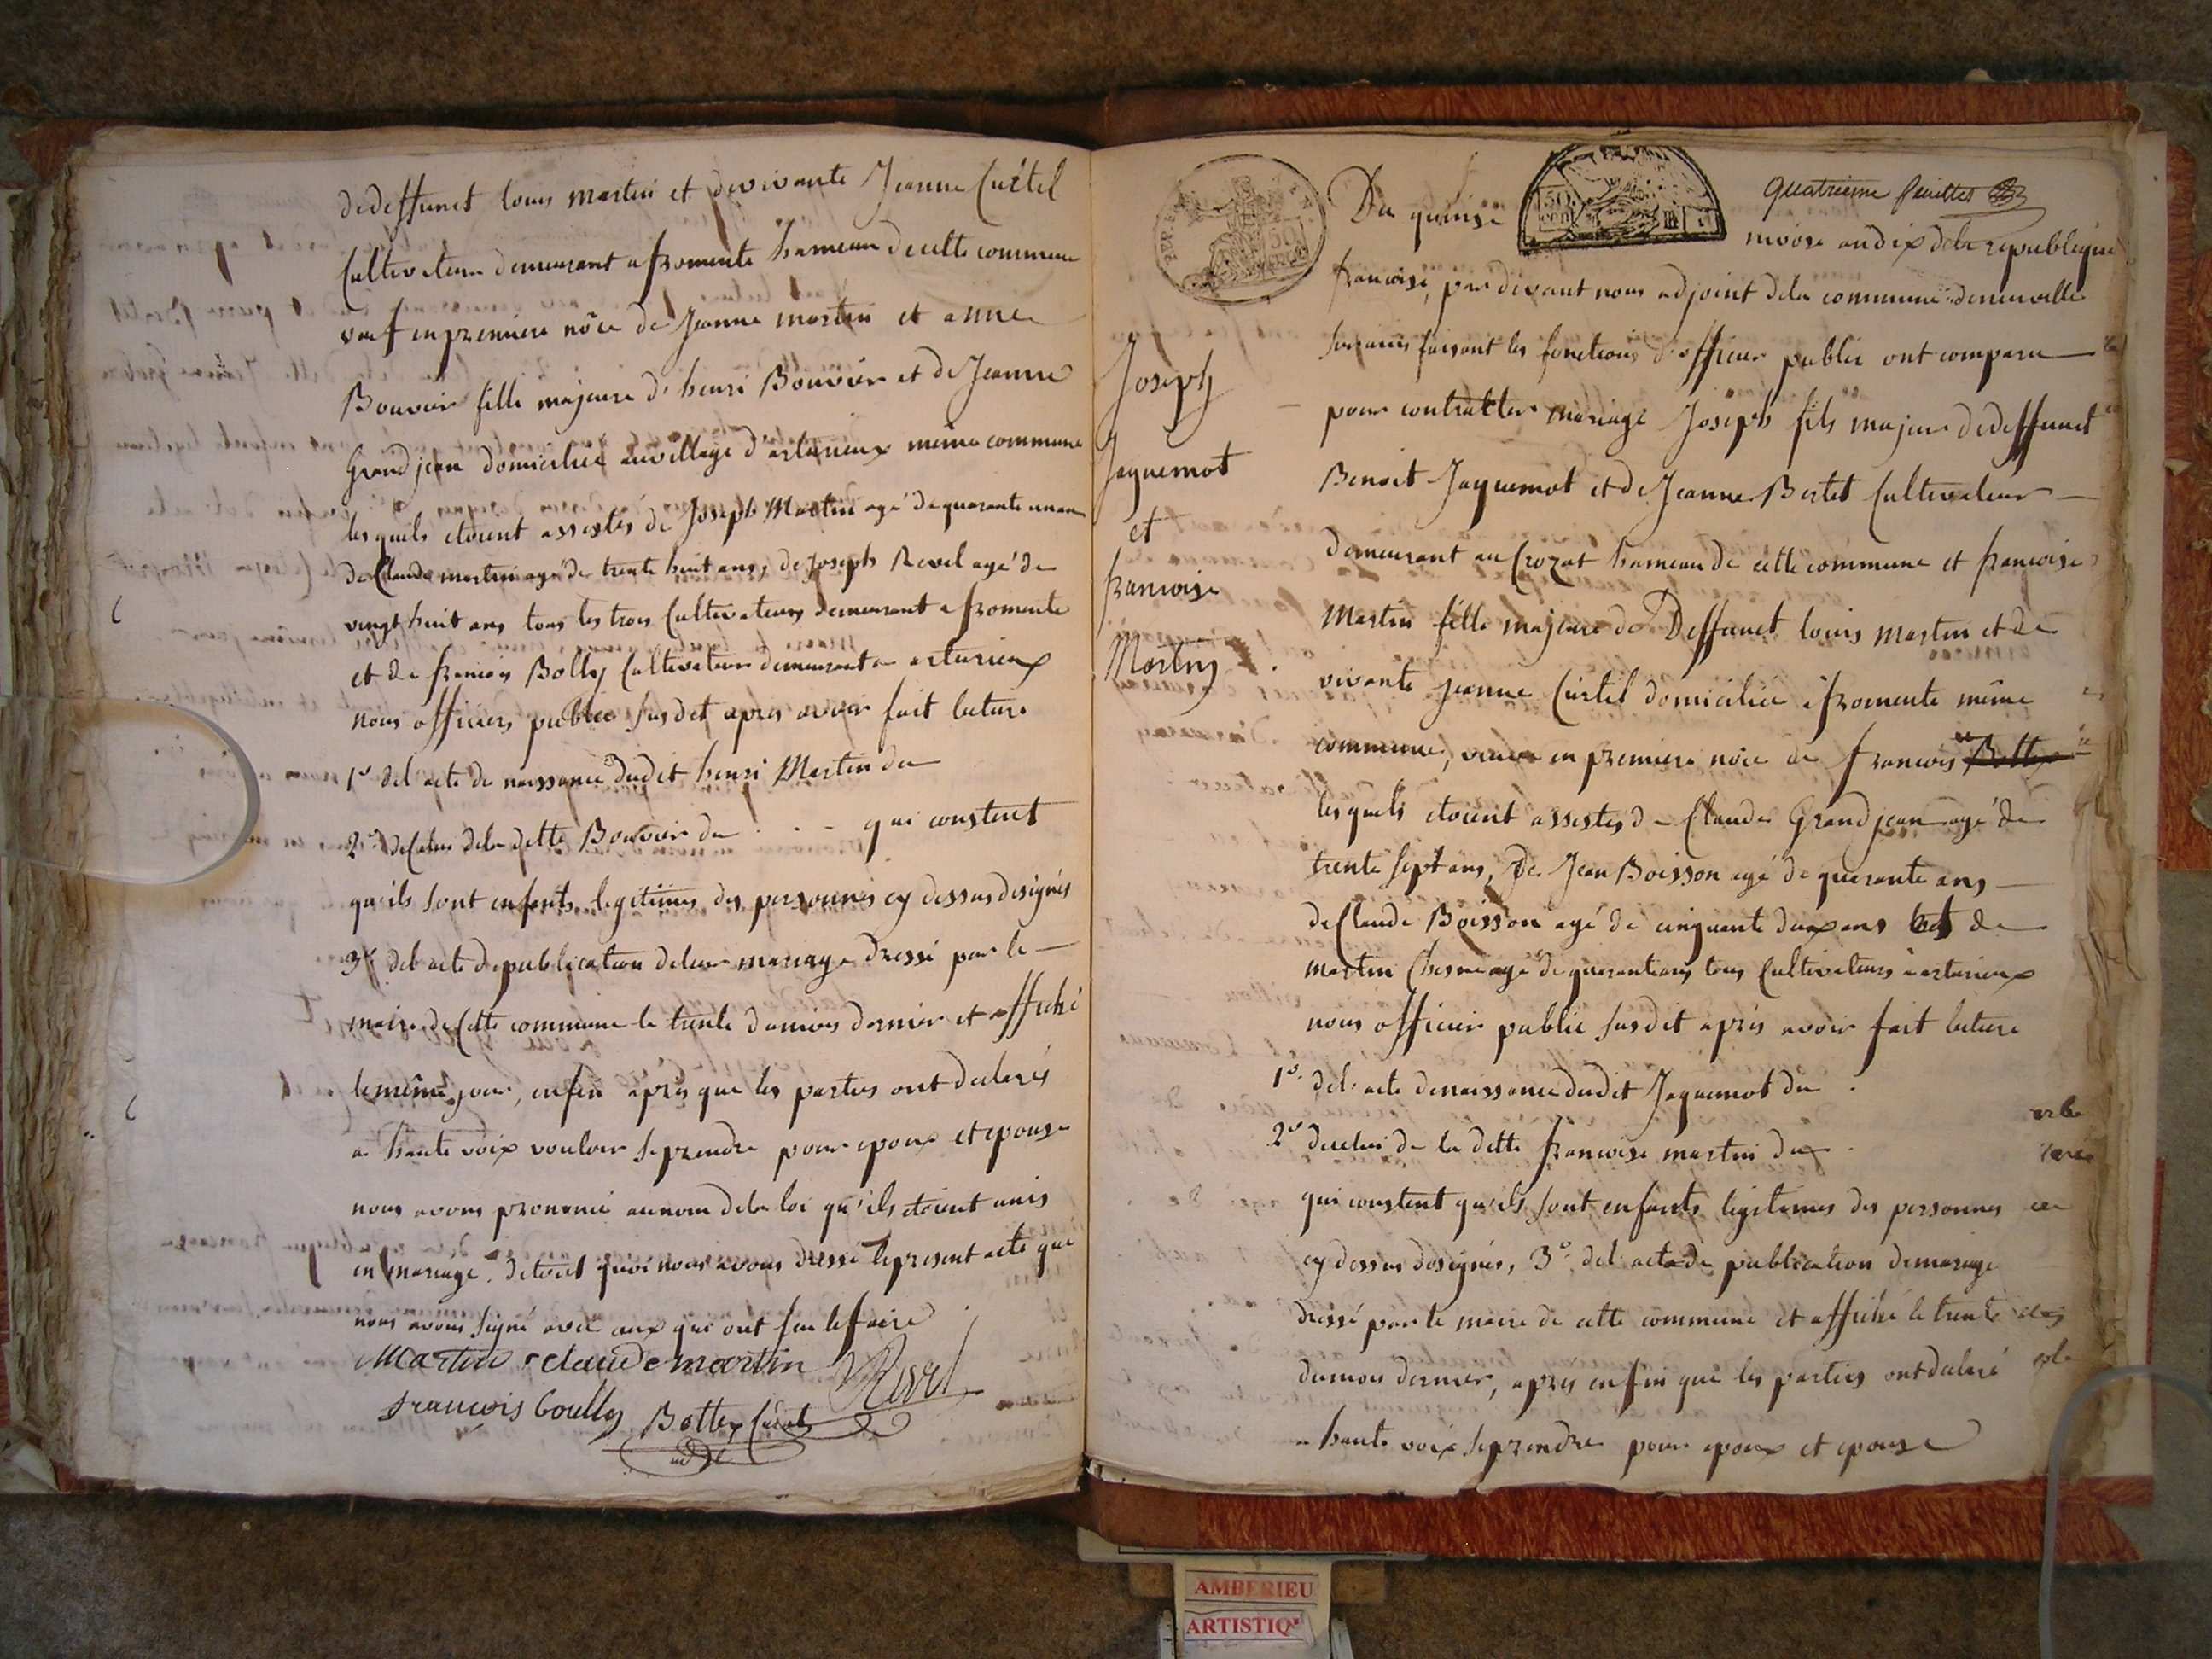 dedeffunct louis martin et de vivante Jeanne Curtel
Cultivateur demeurant a fromente hameau decette commune
veuf en premiere nôce de Jeanne martin et anne
Bouvier fille majeure d'henri Bouvier et de Jeanne
Grandjean domiciliée au village d'arturieux même commune
les quels etoient assistés de Joseph Martin agé de quarante un an
de Claude martin agé de trente huit ans, de Joseph Revel agé de
vingt huit ans tous les trois Cultivateurs demeurant a fromente
et de francois Bolley Cultivateur demeurant a arturieux
nous officiers public susdit apres avoir fait lecture
1º del'acte de naissance dudit henri Martin du
2º de celui dela ditte Bouvier du . . - qui constent
qu'ils sont enfants legitimes des personnes cy dessus designés
3º del'acte de publication deleur mariage dressé par le —
maire de Cette commune le trente du mois dernier et affiché
le même jour, enfin après que les parties ont declarés
a haute voix vouloir se prendre pour epoux et epouse
nous avons prononcé au nom dela loi qu'ils etoient unis
en mariage. de tout quoi nous avons dressé le present acte que
nous avons signé avec ceux qui ont sçu le faire
Martin claude martin Revel
francois bolley Bottex
Quatrieme feuillet
Du quinze nivose an dix dela republique
francoise, par devant nous adjoint dela commune deneuville
faisant les fonctions d'officier public ont comparu —
Joseph
Jaquemot
et
francoise
Martin
pour contratter mariage Joseph fils majeur dedeffunct
Benoit Jaquemot et de Jeanne Bertet Cultivateur —
demeurant au Crozat hameau de cette commune et francoise
Martin fille majeure de Deffunct louis martin et de
vivante Jeanne Curtel domiciliée a fromente même
commune, veuve en premiere nôce de francois Bottex
les quels etoient assistés de Claude Grandjean agé de
trente sept ans, de Jean Boisson agé de quarante ans —
de Claude Boisson agé de cinquante deux ans et de
martin Chesne agé de quarante ans tous Cultivateurs a arturieux
nous officier public susdit après avoir fait lecture
1º. del'acte denaissance dudit Jaquemot du .
2º decelui de la ditte francoise martin du .
qui constent qu'ils sont enfants legitimes des personnes
cy dessus designés, 3º del'acte de publication demariage
dressé par le maire de cette commune et affiché le trente
du mois dernier, apres enfin que les parties ont declaré
a haute voix se prendre pour epoux et epouse
AMBERIEU
ARTISTIQ